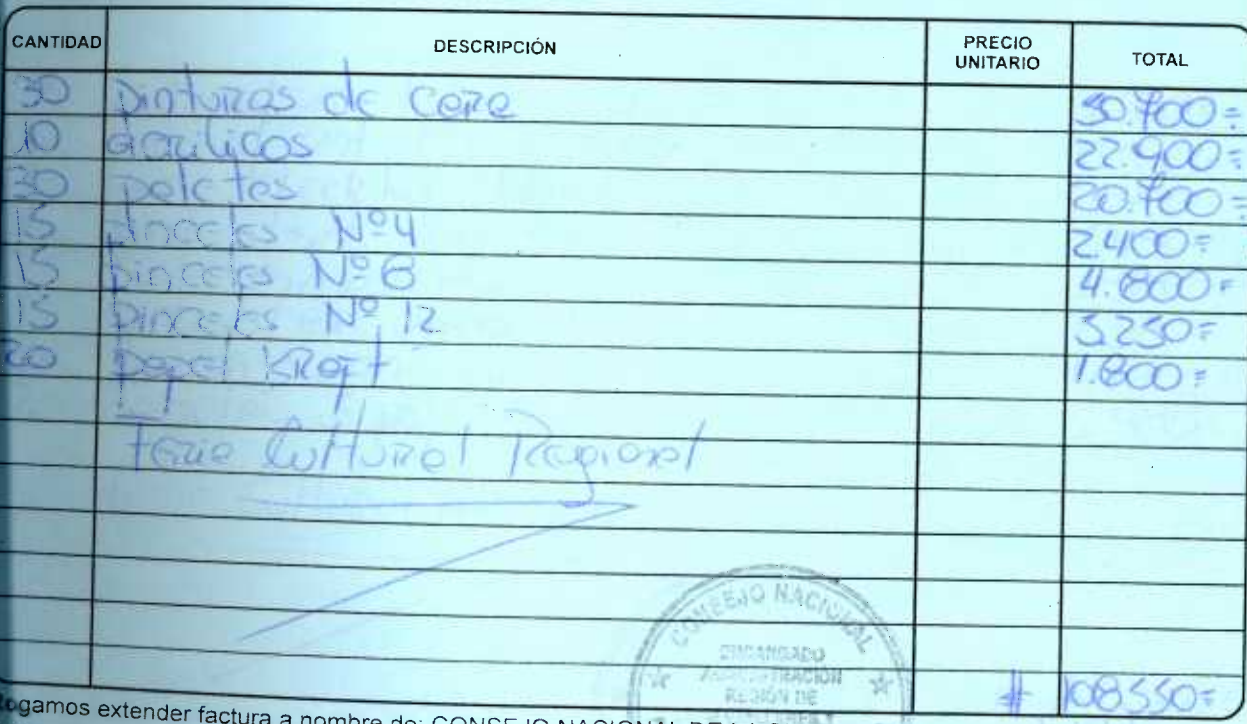 CANTIDAD DESCRIPCIÓN PRECIO UNITARIO TOTAL
30 pinturas de cera 50.700=
10 acrilicos 22.900=
30 paletas 20.700=
15 pinceles Nº4 2.400=
15 pinceles Nº 8 4.800=
15 pinceles Nº 12 5.250=
20 papel Kraft 1.800=
Feria Cultural Regional
CONSEJO NACIONAL
ENCARGADO
ADMINISTRACIÓN
REGIÓN DE
# 108.550=
Rogamos extender factura a nombre de: CONSEJO NACIONAL DE LA